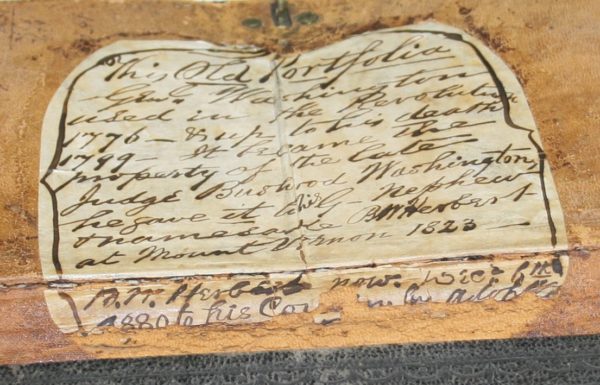 This Old Portfolia
Genl. Washington
used in the Revolution
1776 - & up to his death
1799 - It became the
property of the late
Judge Bushrod Washington
he gave it his Nephew
& namesake B W Herbert
at Mount Vernon 1823 -
B. W. Herbert now.
1880 to his